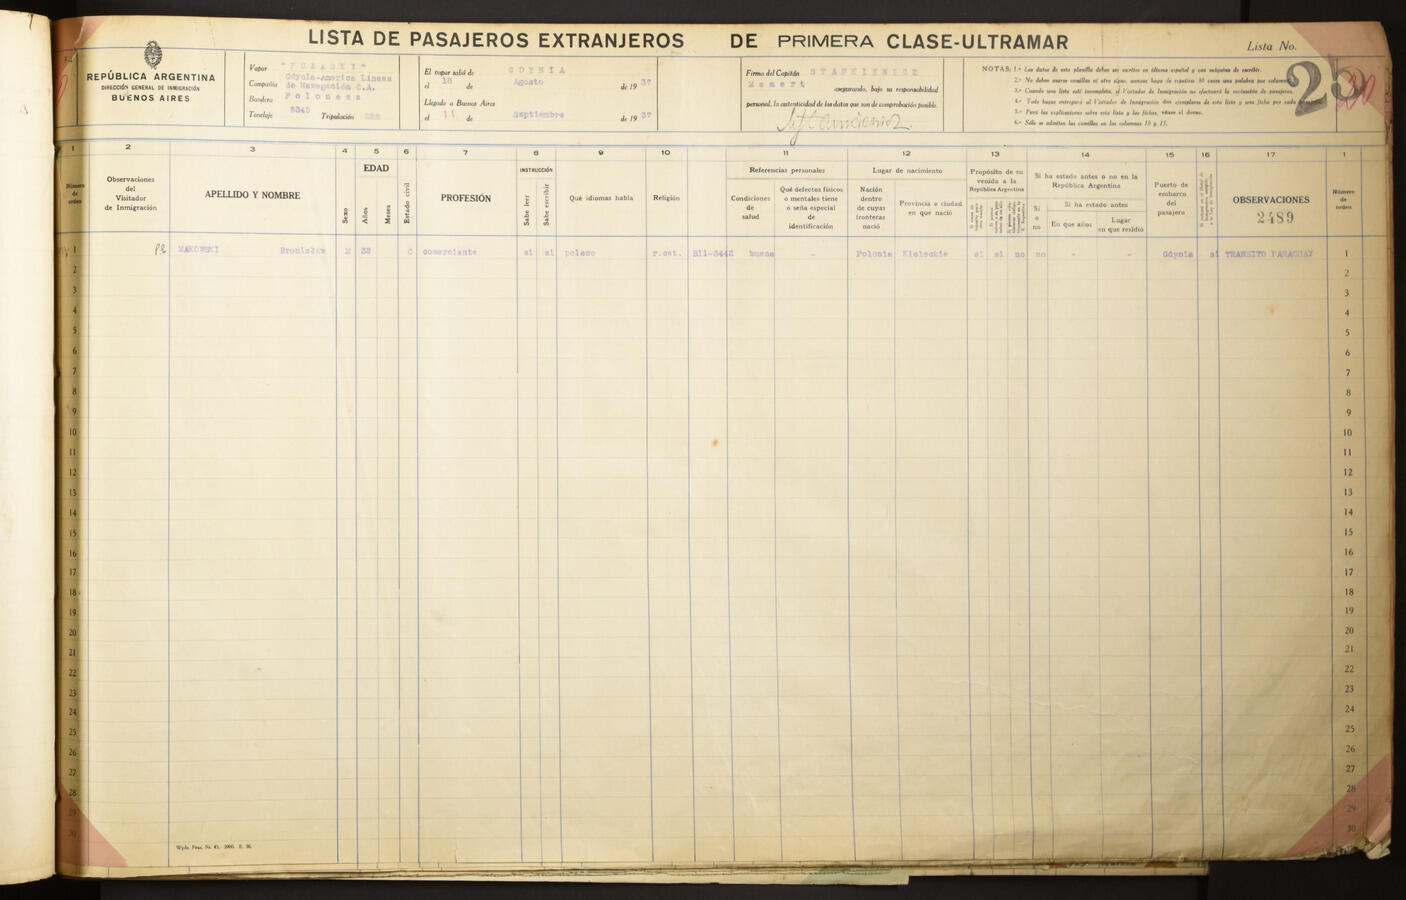 LISTA DE PASAJEROS EXTRANJEROS DE PRIMERA CLASE-ULTRAMAR
Lista No.
25
REPÚBLICA ARGENTINA
DIRECCIÓN GENERAL DE INMIGRACIÓN
BUENOS AIRES
Vapor "PUŁASKI"
Compañía Gdynia-America Lineas de Navegación C.A.
Bandera Polonesa
Tonelaje 6345 Tripulación
El vapor salió de GDYNIA
el 18 de Agosto de 1937
Llegado a Buenos Aires
el 11 de Septiembre de 1937
Firma del Capitán
asegurando, bajo su responsabilidad
personal, la autenticidad de los datos que son de comprobación posible.
NOTAS: 1.ª Los datos de esta planilla deben ser escritos en idioma español y con máquina de escribir.
2.ª No deben usarse comillas ni otro signo, aunque haya de repetirse 30 veces una palabra por columna.
3.ª Cuando una lista esté incompleta, el Visitador de Inmigración no efectuará la recepción de pasajeros.
4.ª Todo buque entregará al Visitador de Inmigración dos ejemplares de esta lista y una ficha por cada
5.ª Para las explicaciones sobre esta lista y las fichas, véase el dorso.
6.ª Sólo se admiten las comillas en las columnas 10 y 15.
1 2 3 4 5 6 7 8 9 10 11 12 13 14 15 16 17 1
Número de orden
Observaciones del Visitador de Inmigración
APELLIDO Y NOMBRE
Sexo
EDAD
Años
Meses
Estado civil
PROFESIÓN
INSTRUCCIÓN
Sabe leer
Sabe escribir
Qué idiomas habla
Religión
Referencias personales
Condiciones de salud
Qué defectos físicos o mentales tiene o seña especial de identificación
Lugar de nacimiento
Nación dentro de cuyas fronteras nació
Provincia o ciudad en que nació
Propósito de su venida a la República Argentina
Si ha estado antes o no en la República Argentina
Si o no
Si ha estado antes
En que años
Lugar en que residió
Puerto de embarco del pasajero
OBSERVACIONES
2489
Número de orden
1 MAKOWSKI Bronisław M 33 C comerciante si si polaco r.cat. B11-3442 buena - Polonia Kieleckie si si no no - - Gdynia si TRANSITO PARAGUAY 1
2 2
3 3
4 4
5 5
6 6
7 7
8 8
9 9
10 10
11 11
12 12
13 13
14 14
15 15
16 16
17 17
18 18
19 19
20 20
21 21
22 22
23 23
24 24
25 25
26 26
27 27
28 28
29 29
30 30